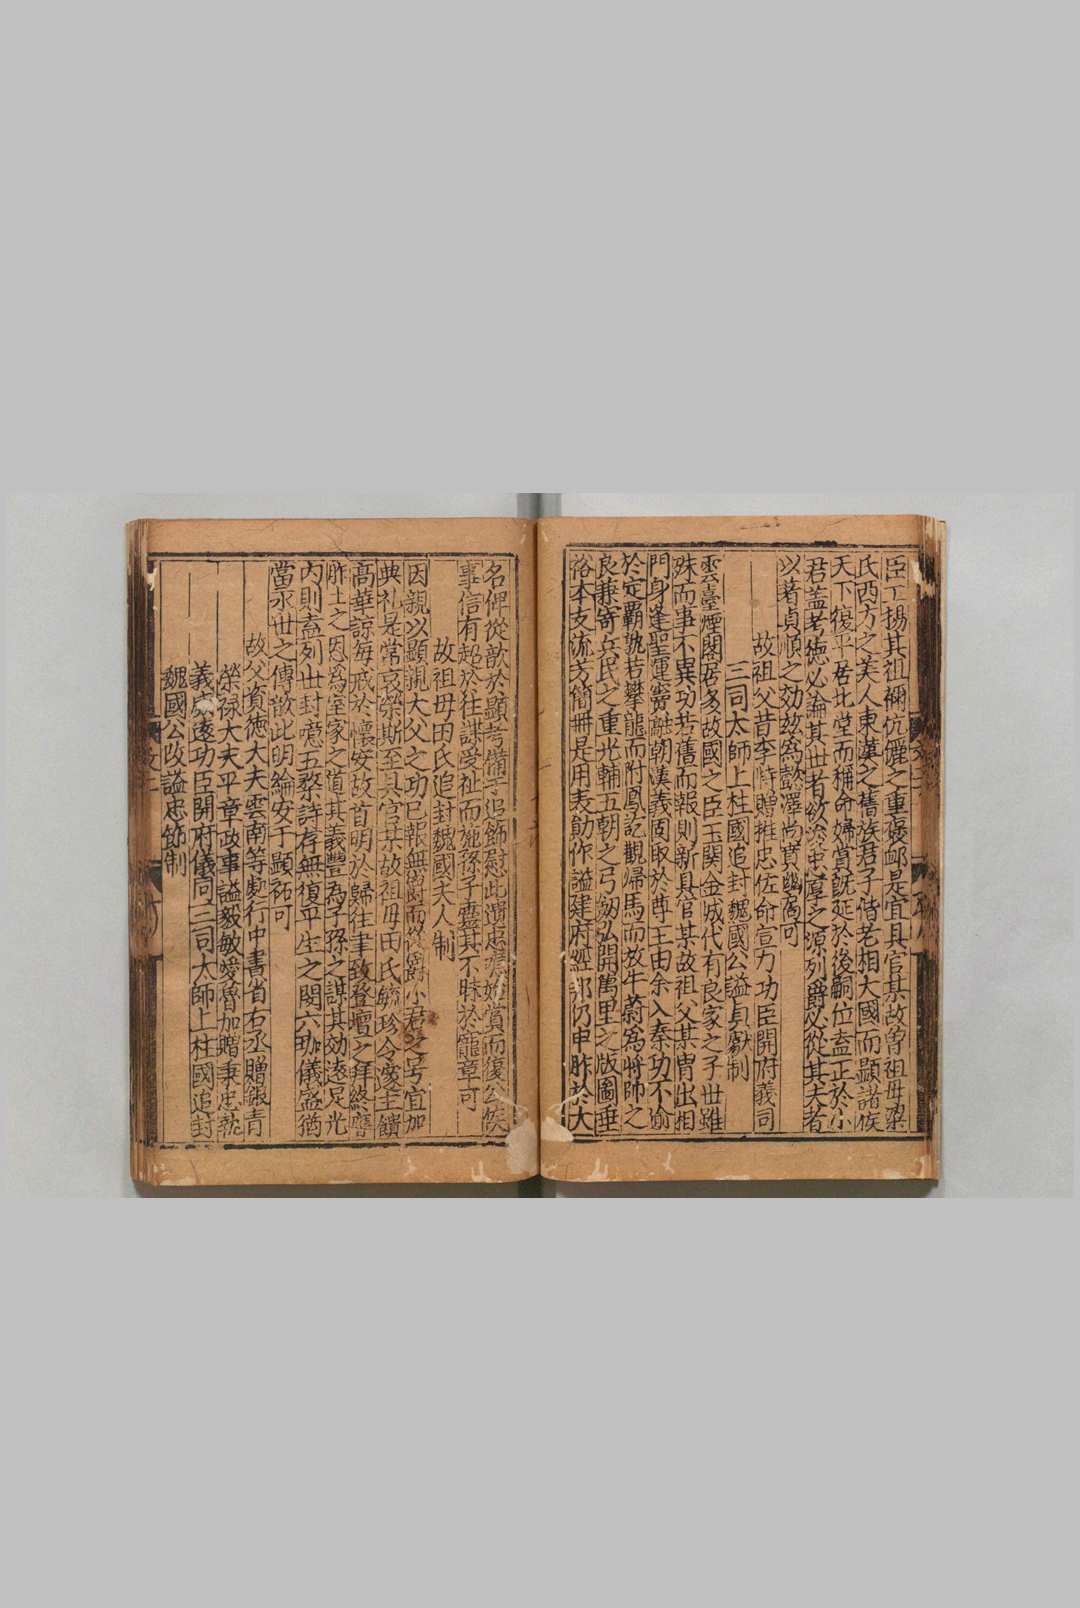 臣工揚其祖禰伉儷之重褒䘏是宜具官某故曽祖母梁
氏西方之美人東漢之舊族君子偕老相大國而顯諸侯
天下復平居北堂而稱命婦賞旣延於後嗣位盍正於小
君蓋考徳必論其世者欲泝忠厚之源列爵必從其夫者
以著貞順之効故為懿澤尚賁幽扃可
故祖父昔李時贈推忠佐命宣力功臣開府義司
三司太師上柱國追封魏國公謚貞獻制
雲臺煙閣居多故國之臣玉関金城代有良家之子世雖
殊而事不異功若舊而報則新具官某故祖父某胄出相
門身逢聖運賓融朝漢義固取於尊王由余入秦功不諭
於定霸孰若攀龍而附鳳記觀帰馬而放牛蔚為將帥之
良兼寄兵民之重光輔五朝之弓劒弘開萬里之版圖垂
裕本支流芳簡冊是用表勛作謚建府經邦仍申胙於大
名俾從歆於顯考備予追飾慰此遺忠
事信有超於往諜受祉而施孫子靈其不昧於寵章可
故祖母田氏追封魏國夫人制
因親以顯親大父之功已報無爵而從爵小君之号宜加
典礼是常哀榮斯至具官某故祖母田氏毓珍令度主饋
高華諒每戒於懷安故首明於歸往聿致登壇之拜終膺
胙土之因為室家之道其義豐為子孫之謀其効遠足光
内則盍列世封噫五鼎許存無復平生之閟六珈儀盛猶
當永世之傳歆此明綸安于顯祏可
故父資徳大夫雲南等䖏行中書省右丞贈銀青
榮禄大夫平章政事謚毅敏愛魯加贈秉忠執
義威遠功臣開府儀同三司太師上柱國追封
魏國公改謚忠節制